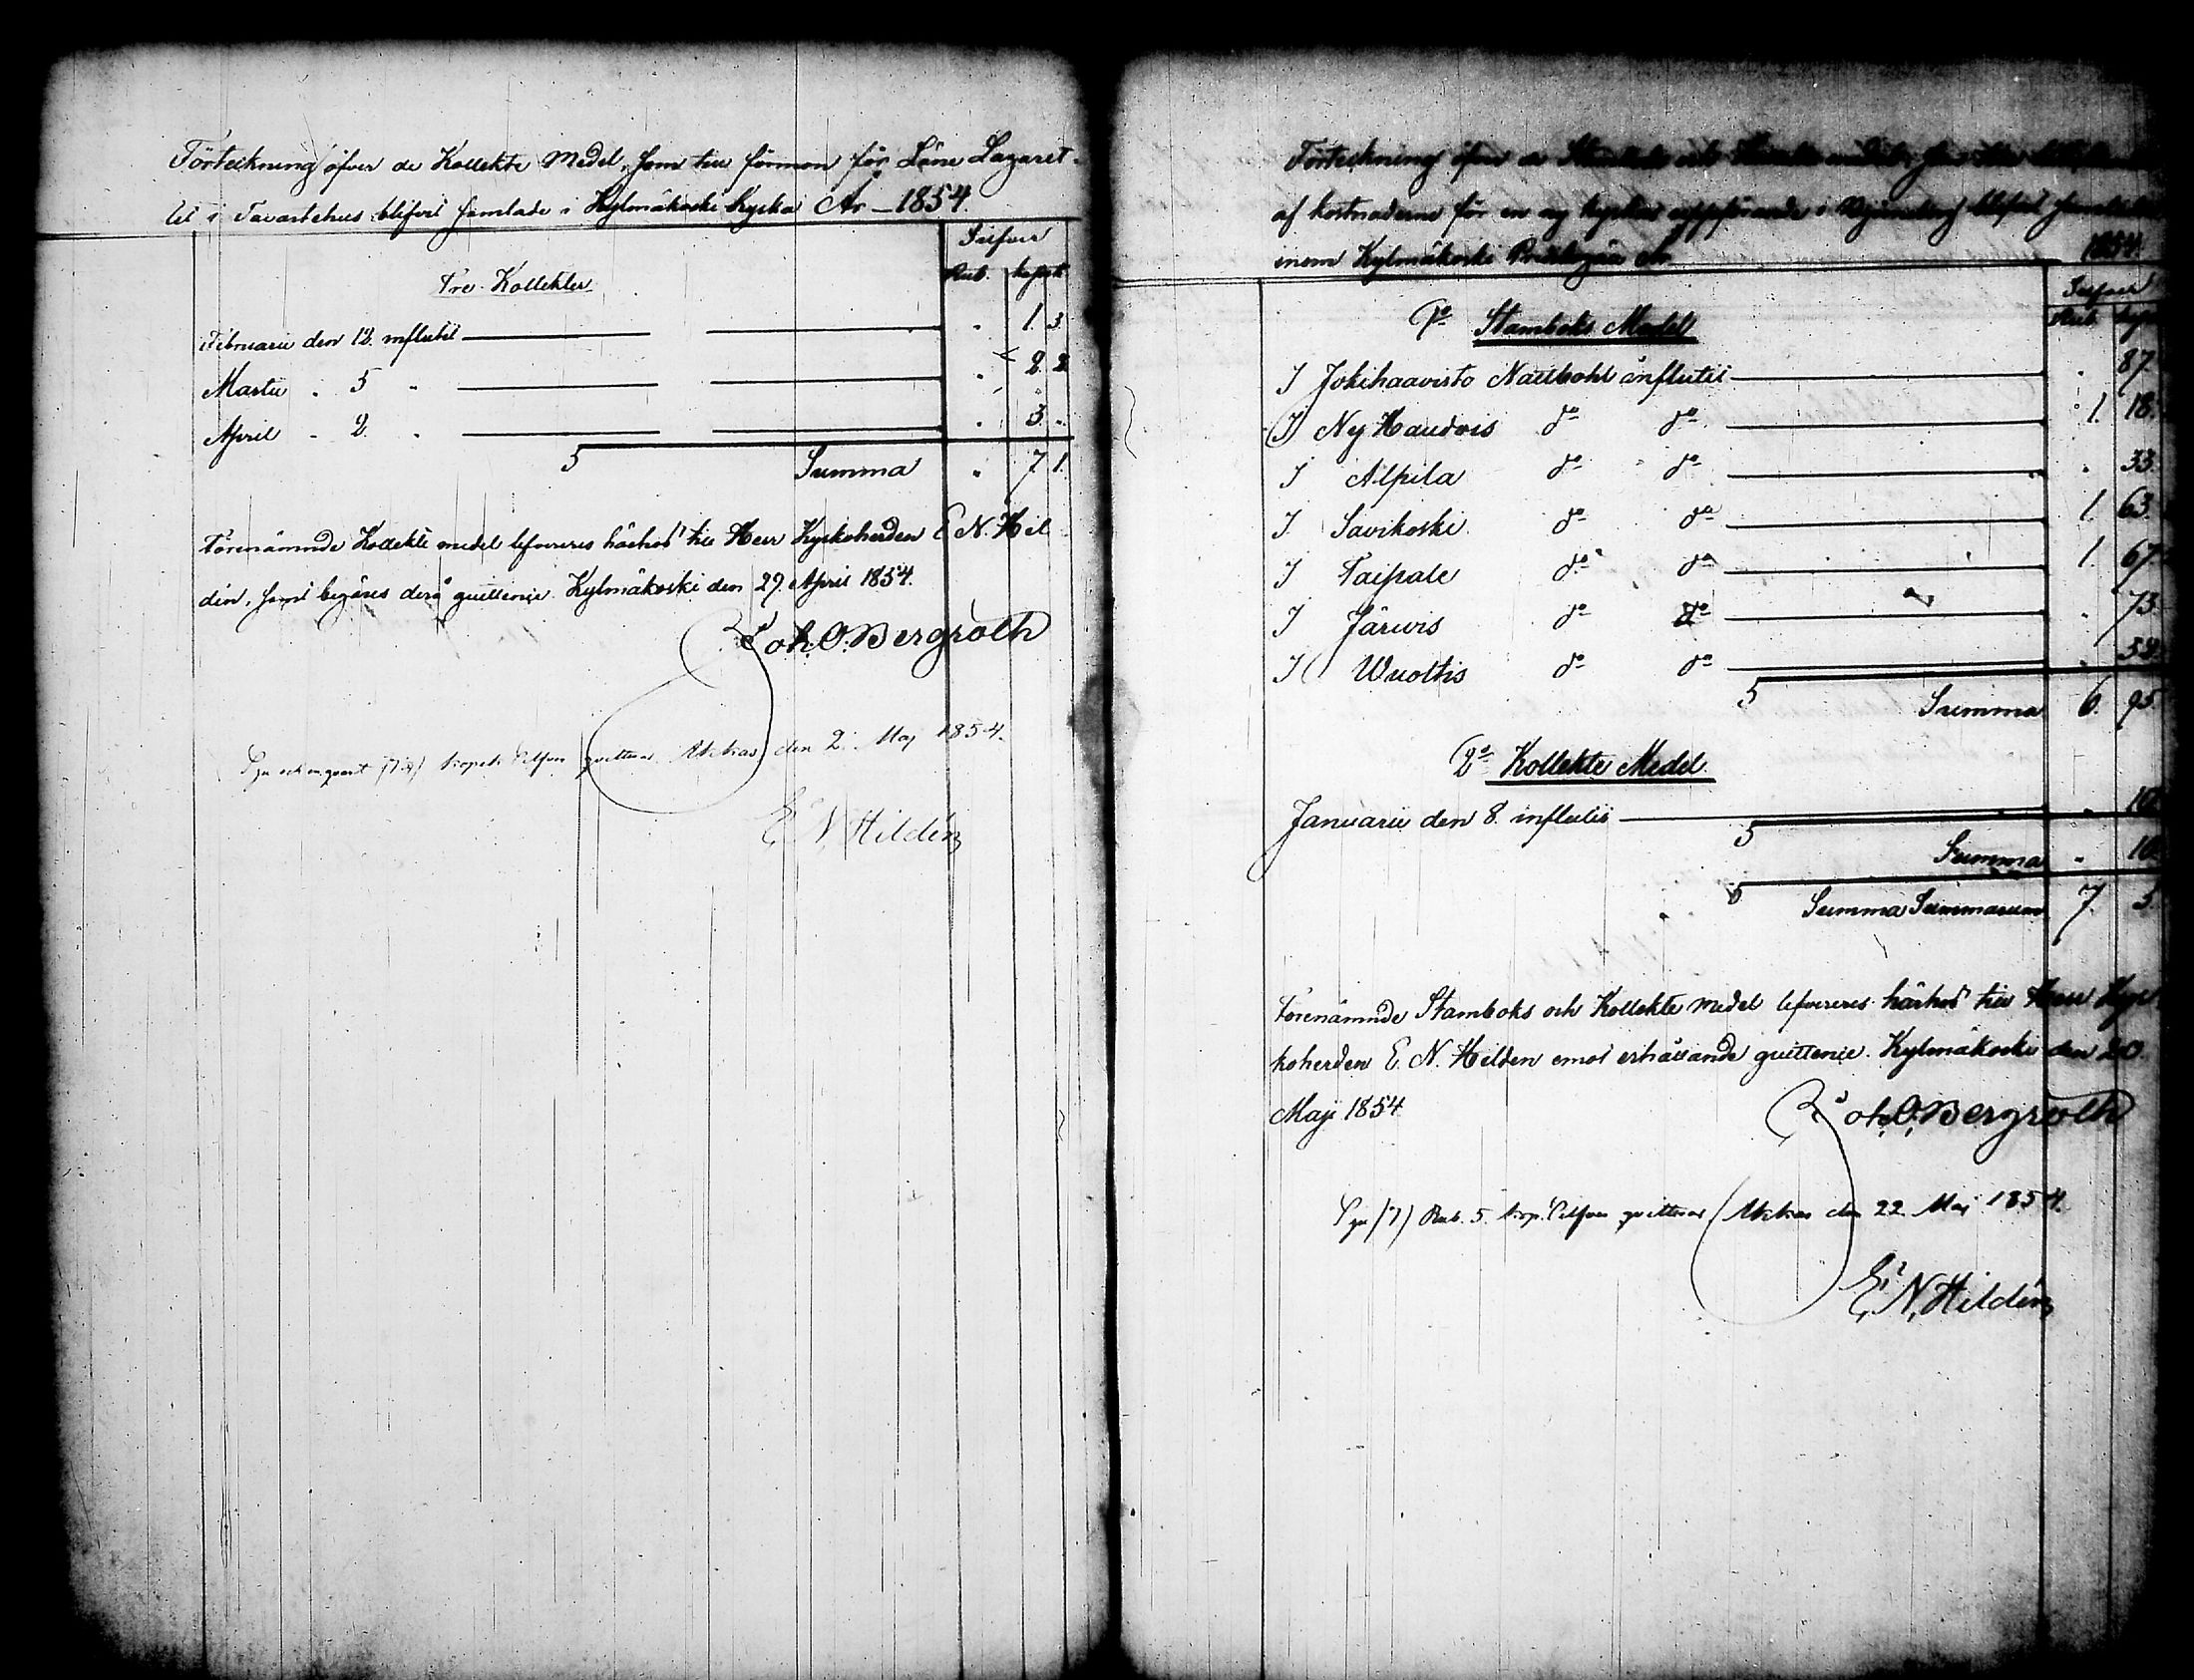 Förteckning öfver de Kollekte Medel, som till förmon för Läne Lazaret-
tet i Tavastehus blifvit samlade i Kylmäkoski Kyrka År 1854.
Silfver
Rub. kopek
Tre Kollekter
Februarii den 12. influtit " 1. 3
Martii " 5 " " 2. 2
April " 2. " " 3. "
Summa " 7 1.
Förenämnde Kollekte medel lefvereres härhos till Herr Kyrkoherden E. N. Hil
dén, samt begäres derå quittence. Kylmäkoski den 29. April 1854.
Joh. O. Bergroth
Sju och en qvart (7¼) kopek Silfver qvitteras Akkas den 2. Maj 1854.
E. N. Hildén
Förteckning öfver de Stamboks och Kollekte medel, som till
af kostnaderne för en ny kyrkas uppförande i blifvit
inom Kylmäkoski År 1854.
Silfver
Rub. kopek
1o Stamboks Medel
I Jokihaavisto Nattbohl influtit " 87.
I Ny Haudois do do 1. 18.
I Alpila do do " 33.
I Savikoski do do 1. 63.
I Taipale do do 1. 67.
I Järvis do do " 73.
I Wuoltis do do " 52.
Summa 6. 95.
2o Kollekte Medel
Januarii den 8. influtit " 10.
Summa " 10.
Summa Summarum 7. 5.
Förenämnde Stamboks och Kollekte medel lefvereres härhos till Herr Kyr
koherden E. N. Hilden emot erhållande quittence. Kylmäkoski den 20.
Maji 1854
Joh. O. Bergroth
Sju (7) Rub. 5. kop. Silfver qvitteras Akkas den 22 Maj 1854.
E. N. Hildén